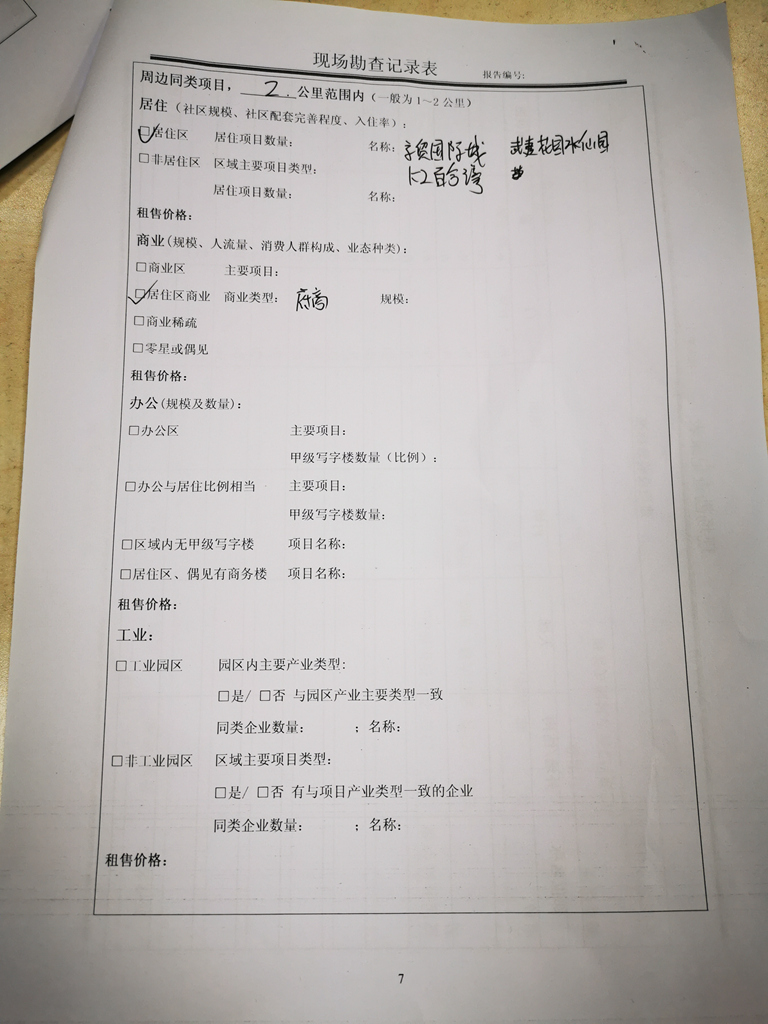 现场勘查记录表
报告编号:
周边同类项目，2.公里范围内（一般为1～2公里）
居住（社区规模、社区配套完善程度、入住率）:
☑居住区 居住项目数量: 名称: 国际城 花园水仙园
□非居住区 区域主要项目类型: 百合湾
居住项目数量: 名称:
租售价格:
商业(规模、人流量、消费人群构成、业态种类):
□商业区 主要项目:
☑居住区商业 商业类型: 底商 规模:
□商业稀疏
□零星或偶见
租售价格:
办公(规模及数量):
□办公区 主要项目:
甲级写字楼数量（比例）:
□办公与居住比例相当 主要项目:
甲级写字楼数量:
□区域内无甲级写字楼 项目名称:
□居住区、偶见有商务楼 项目名称:
租售价格:
工业:
□工业园区 园区内主要产业类型:
□是/ □否 与园区产业主要类型一致
同类企业数量: ；名称:
□非工业园区 区域主要项目类型:
□是/ □否 有与项目产业类型一致的企业
同类企业数量: ；名称:
租售价格:
7